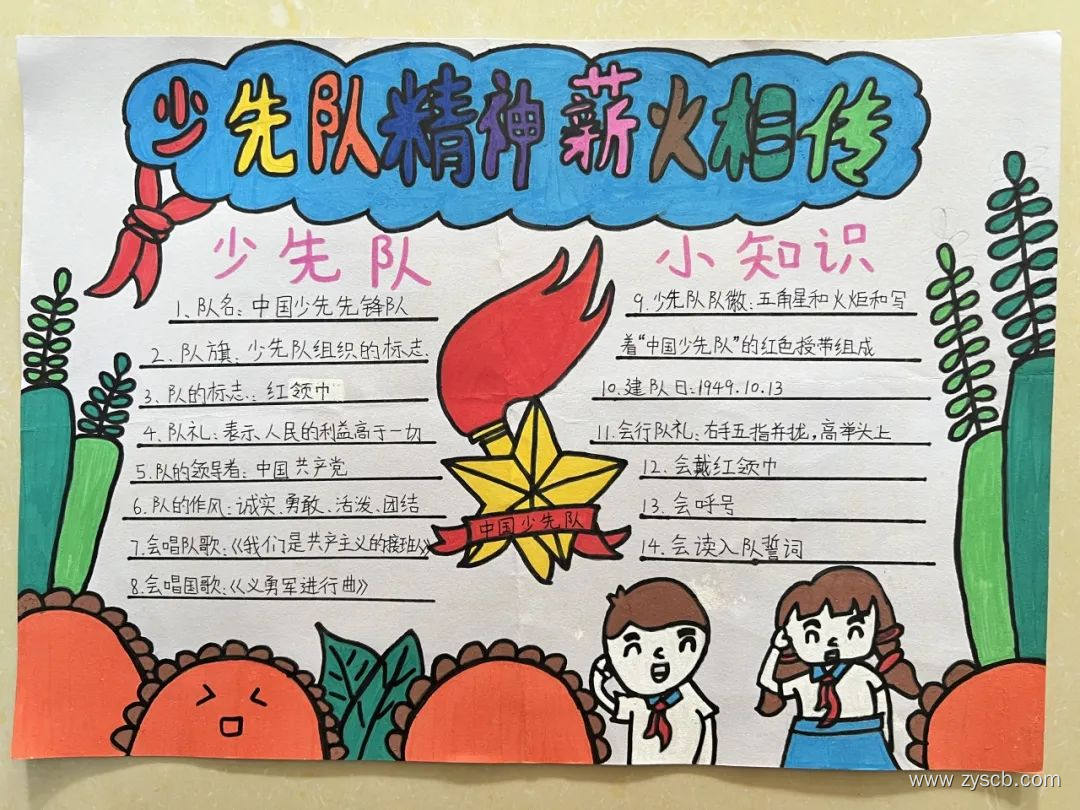 少先队精神薪火相传
少先队 小知识
1、队名:中国少先先锋队
2、队旗:少先队组织的标志.
3、队的标志:红领巾
4、队礼:表示、人民的利益高于一切
5、队的领导者:中国共产党
6、队的作风:诚实、勇敢、活泼、团结
7、会唱队歌:《我们是共产主义的接班人》
8.会唱国歌:《义勇军进行曲》
中国少先队
9、少先队队徽:五角星和火炬和写
着“中国少先队”的红色授带组成
10.建队日:1949.10.13
11.会行队礼:右手五指并拢,高举头上
12、会戴红领巾
13、会呼号
14、会读入队誓词
www.zyscb.com